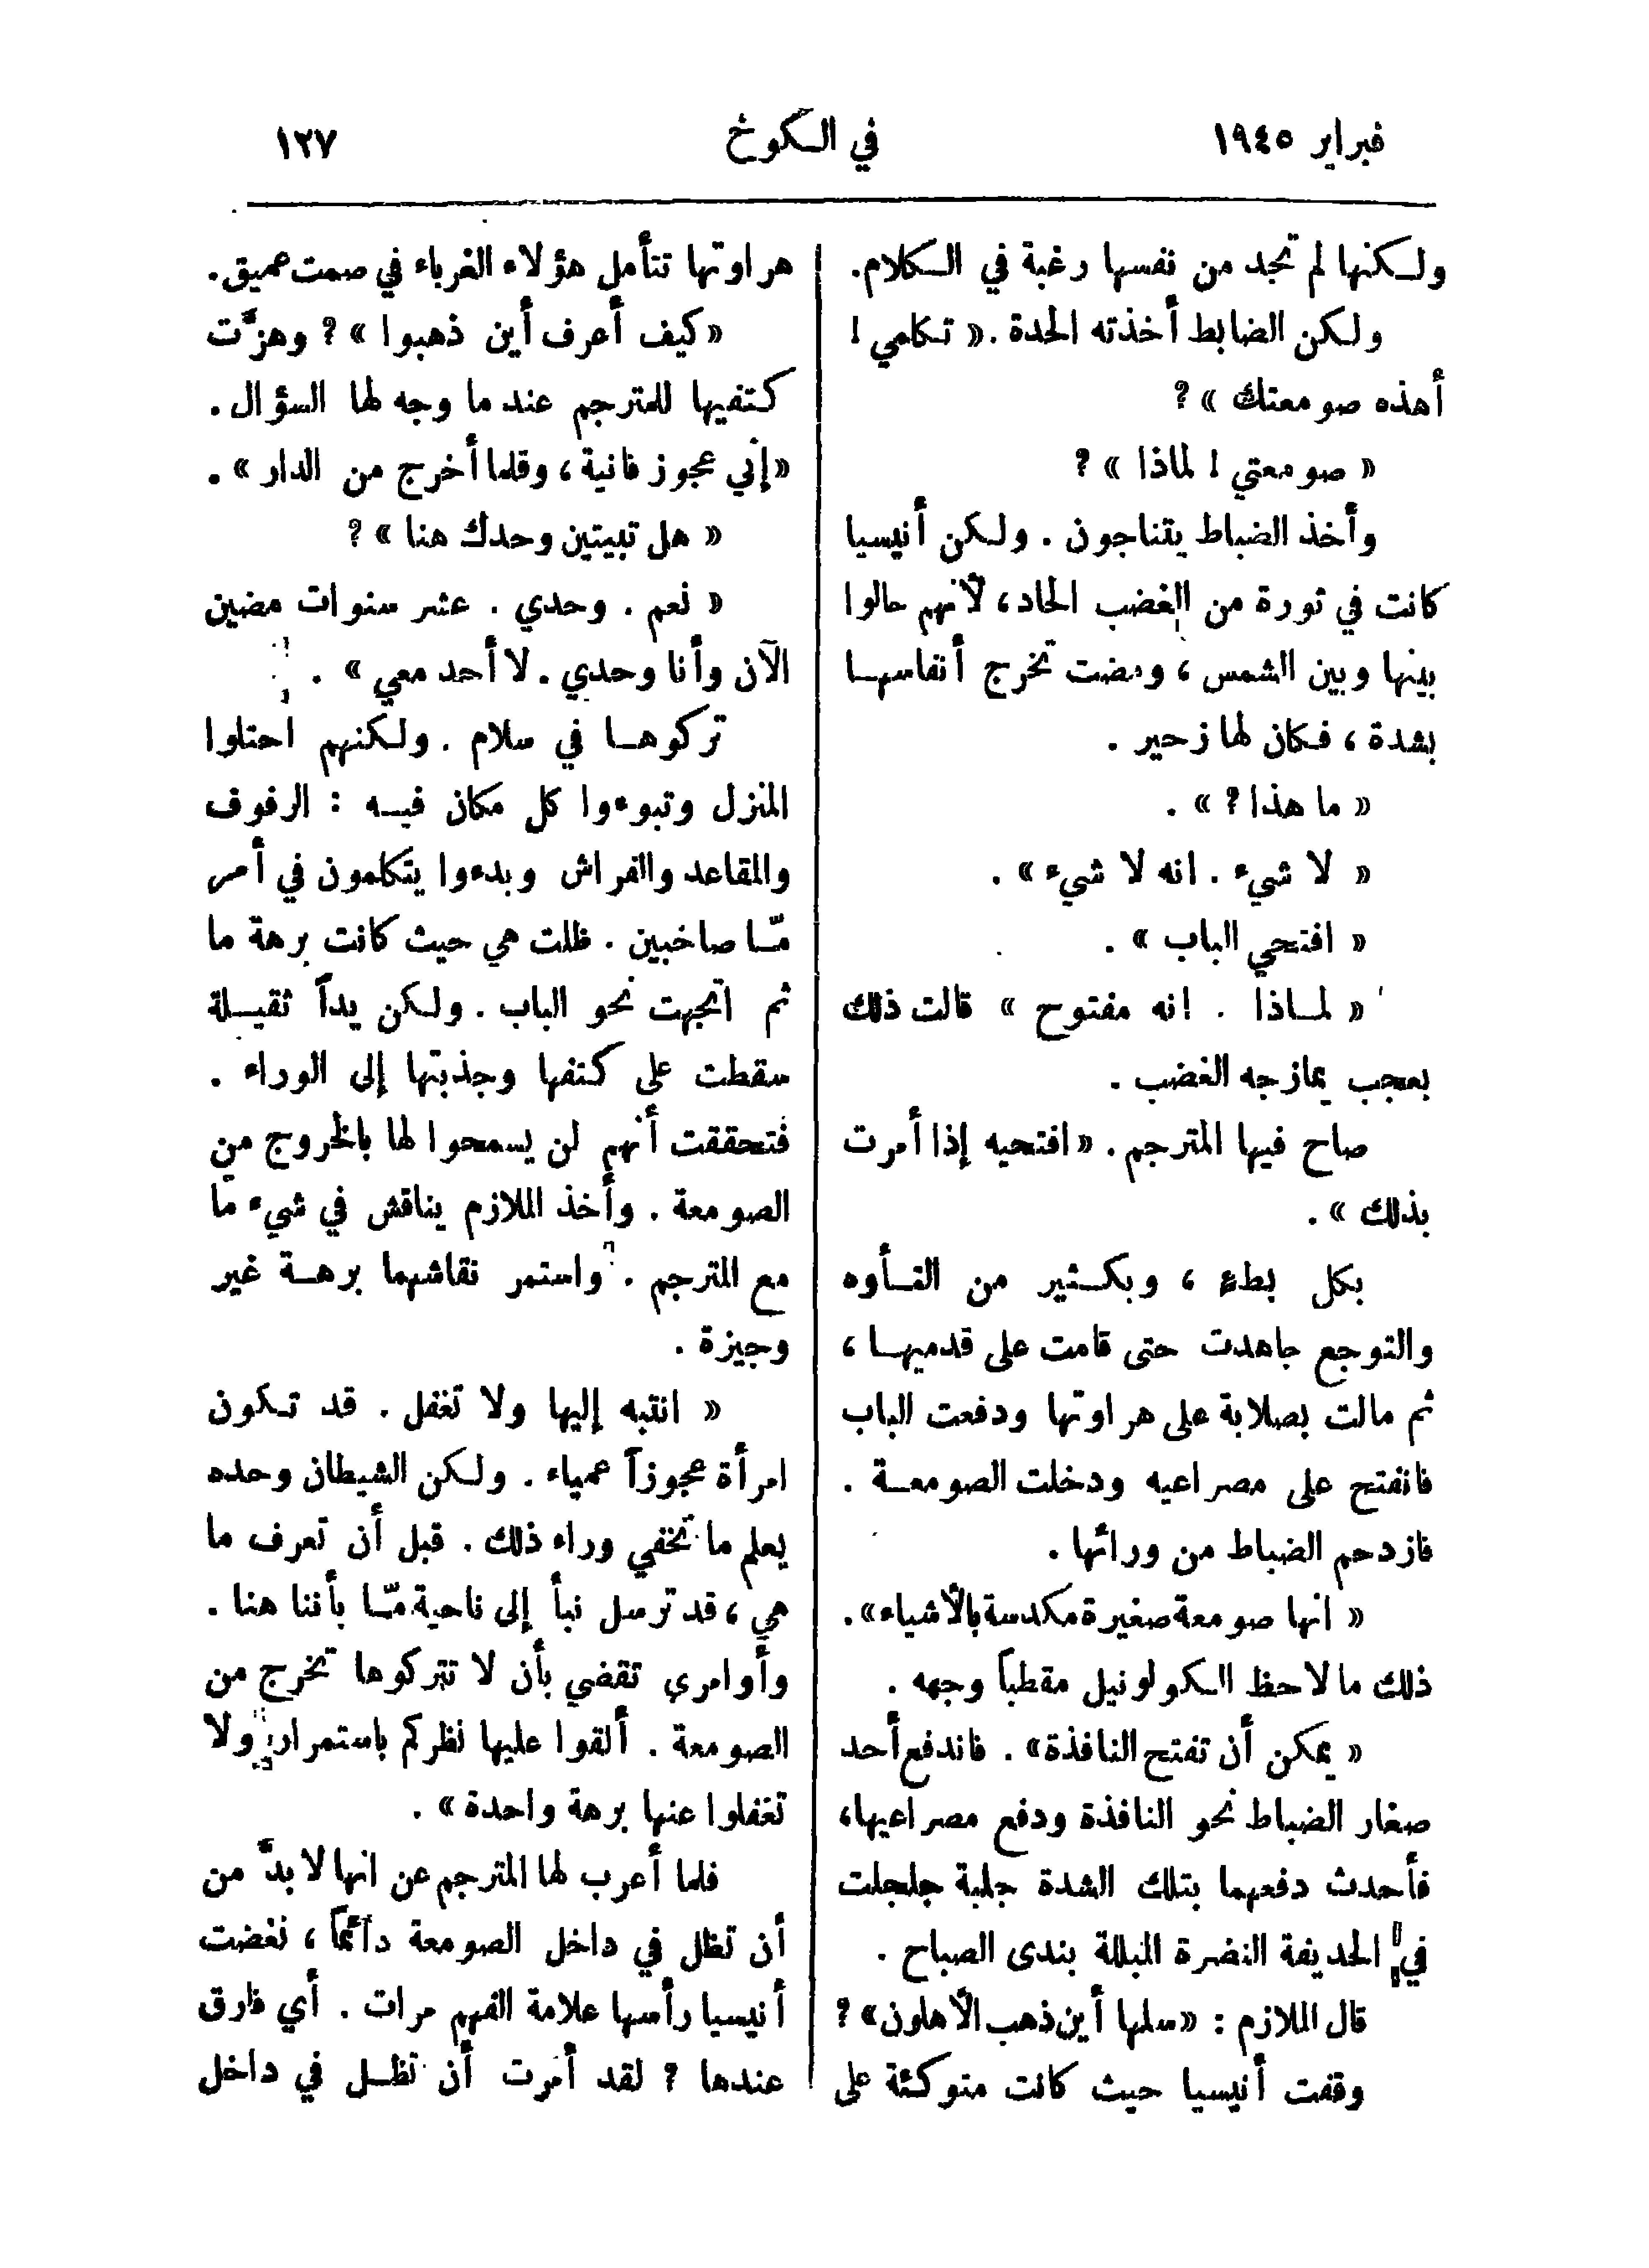 فبراير ١٩٤٥ في الكوخ ١٢٧
ولكنها لم تجد من نفسها رغبة في الكلام.
ولكن الضابط أخذته الحدة . « تكلمي !
أهذه صومعتك » ؟
« صومعتي ! لماذا » ؟
وأخذ الضباط يتناجون . ولكن أنيسيا
كانت في ثورة من الغضب الحاد ، لأنهم حالوا
بينها وبين الشمس ، ومضت تخرج أنفاسها
بشدة ، فكان لها زحير .
« ما هذا ؟ » .
« لا شيء . انه لا شيء » .
« افتحي الباب » .
« لماذا . انه مفتوح » قالت ذلك
بعجب يمازجه الغضب .
صاح فيها المترجم . « افتحيه إذا أمرت
بذلك » .
بكل بطء ، وبكثير من التأوه
والتوجع جاهدت حتى قامت على قدميها ،
ثم مالت بصلابة على هراوتها ودفعت الباب
فانفتح على مصراعيه ودخلت الصومعة .
فازدحم الضباط من ورائها .
« انها صومعة صغيرة مكدسة بالأشياء » .
ذلك ما لاحظ الكولونيل مقطباً وجهه .
« يمكن أن تفتح النافذة » . فاندفع أحد
صغار الضباط نحو النافذة ودفع مصراعيها ،
فأحدث دفعهما بتلك الشدة جلبة جلجلت
في الحديقة النضرة المبللة بندى الصباح .
قال الملازم : « سلها أين ذهب الأهلون » ؟
وقفت أنيسيا حيث كانت متوكئة على
هراوتها تتأمل هؤلاء الغرباء في صمت عميق .
« كيف أعرف أين ذهبوا » ؟ وهزَّت
كتفيها للمترجم عند ما وجه لها السؤال .
« إني عجوز فانية ، وقلما أخرج من الدار » .
« هل تبيتين وحدك هنا » ؟
« نعم . وحدي . عشر سنوات مضين
الآن وأنا وحدي . لا أحد معي » .
تركوها في سلام . ولكنهم احتلوا
المنزل وتبوءوا كل مكان فيه : الرفوف
والمقاعد والفراش وبدءوا يتكلمون في أمر
مّا صاخبين . ظلت هي حيث كانت برهة ما
ثم اتجهت نحو الباب . ولكن يداً ثقيلة
سقطت على كتفها وجذبتها إلى الوراء .
فتحققت أنهم لن يسمحوا لها بالخروج من
الصومعة . وأخذ الملازم يناقش في شيء ما
مع المترجم . واستمر نقاشهما برهة غير
وجيزة .
« انتبه إليها ولا تغفل . قد تكون
امرأة عجوزاً عمياء . ولكن الشيطان وحده
يعلم ما تخفي وراء ذلك . قبل أن تعرف ما
هي ، قد ترسل نبأ إلى ناحية مّا بأننا هنا .
وأوامري تقضي بأن لا تتركوها تخرج من
الصومعة . ألقوا عليها نظركم باستمرار ولا
تغفلوا عنها برهة واحدة » .
فلما أعرب لها المترجم عن انها لا بدَّ من
أن تظل في داخل الصومعة دائماً ، نغضت
أنيسيا رأسها علامة الفهم مرات . أي فارق
عندها ؟ لقد أمرت أن تظل في داخل